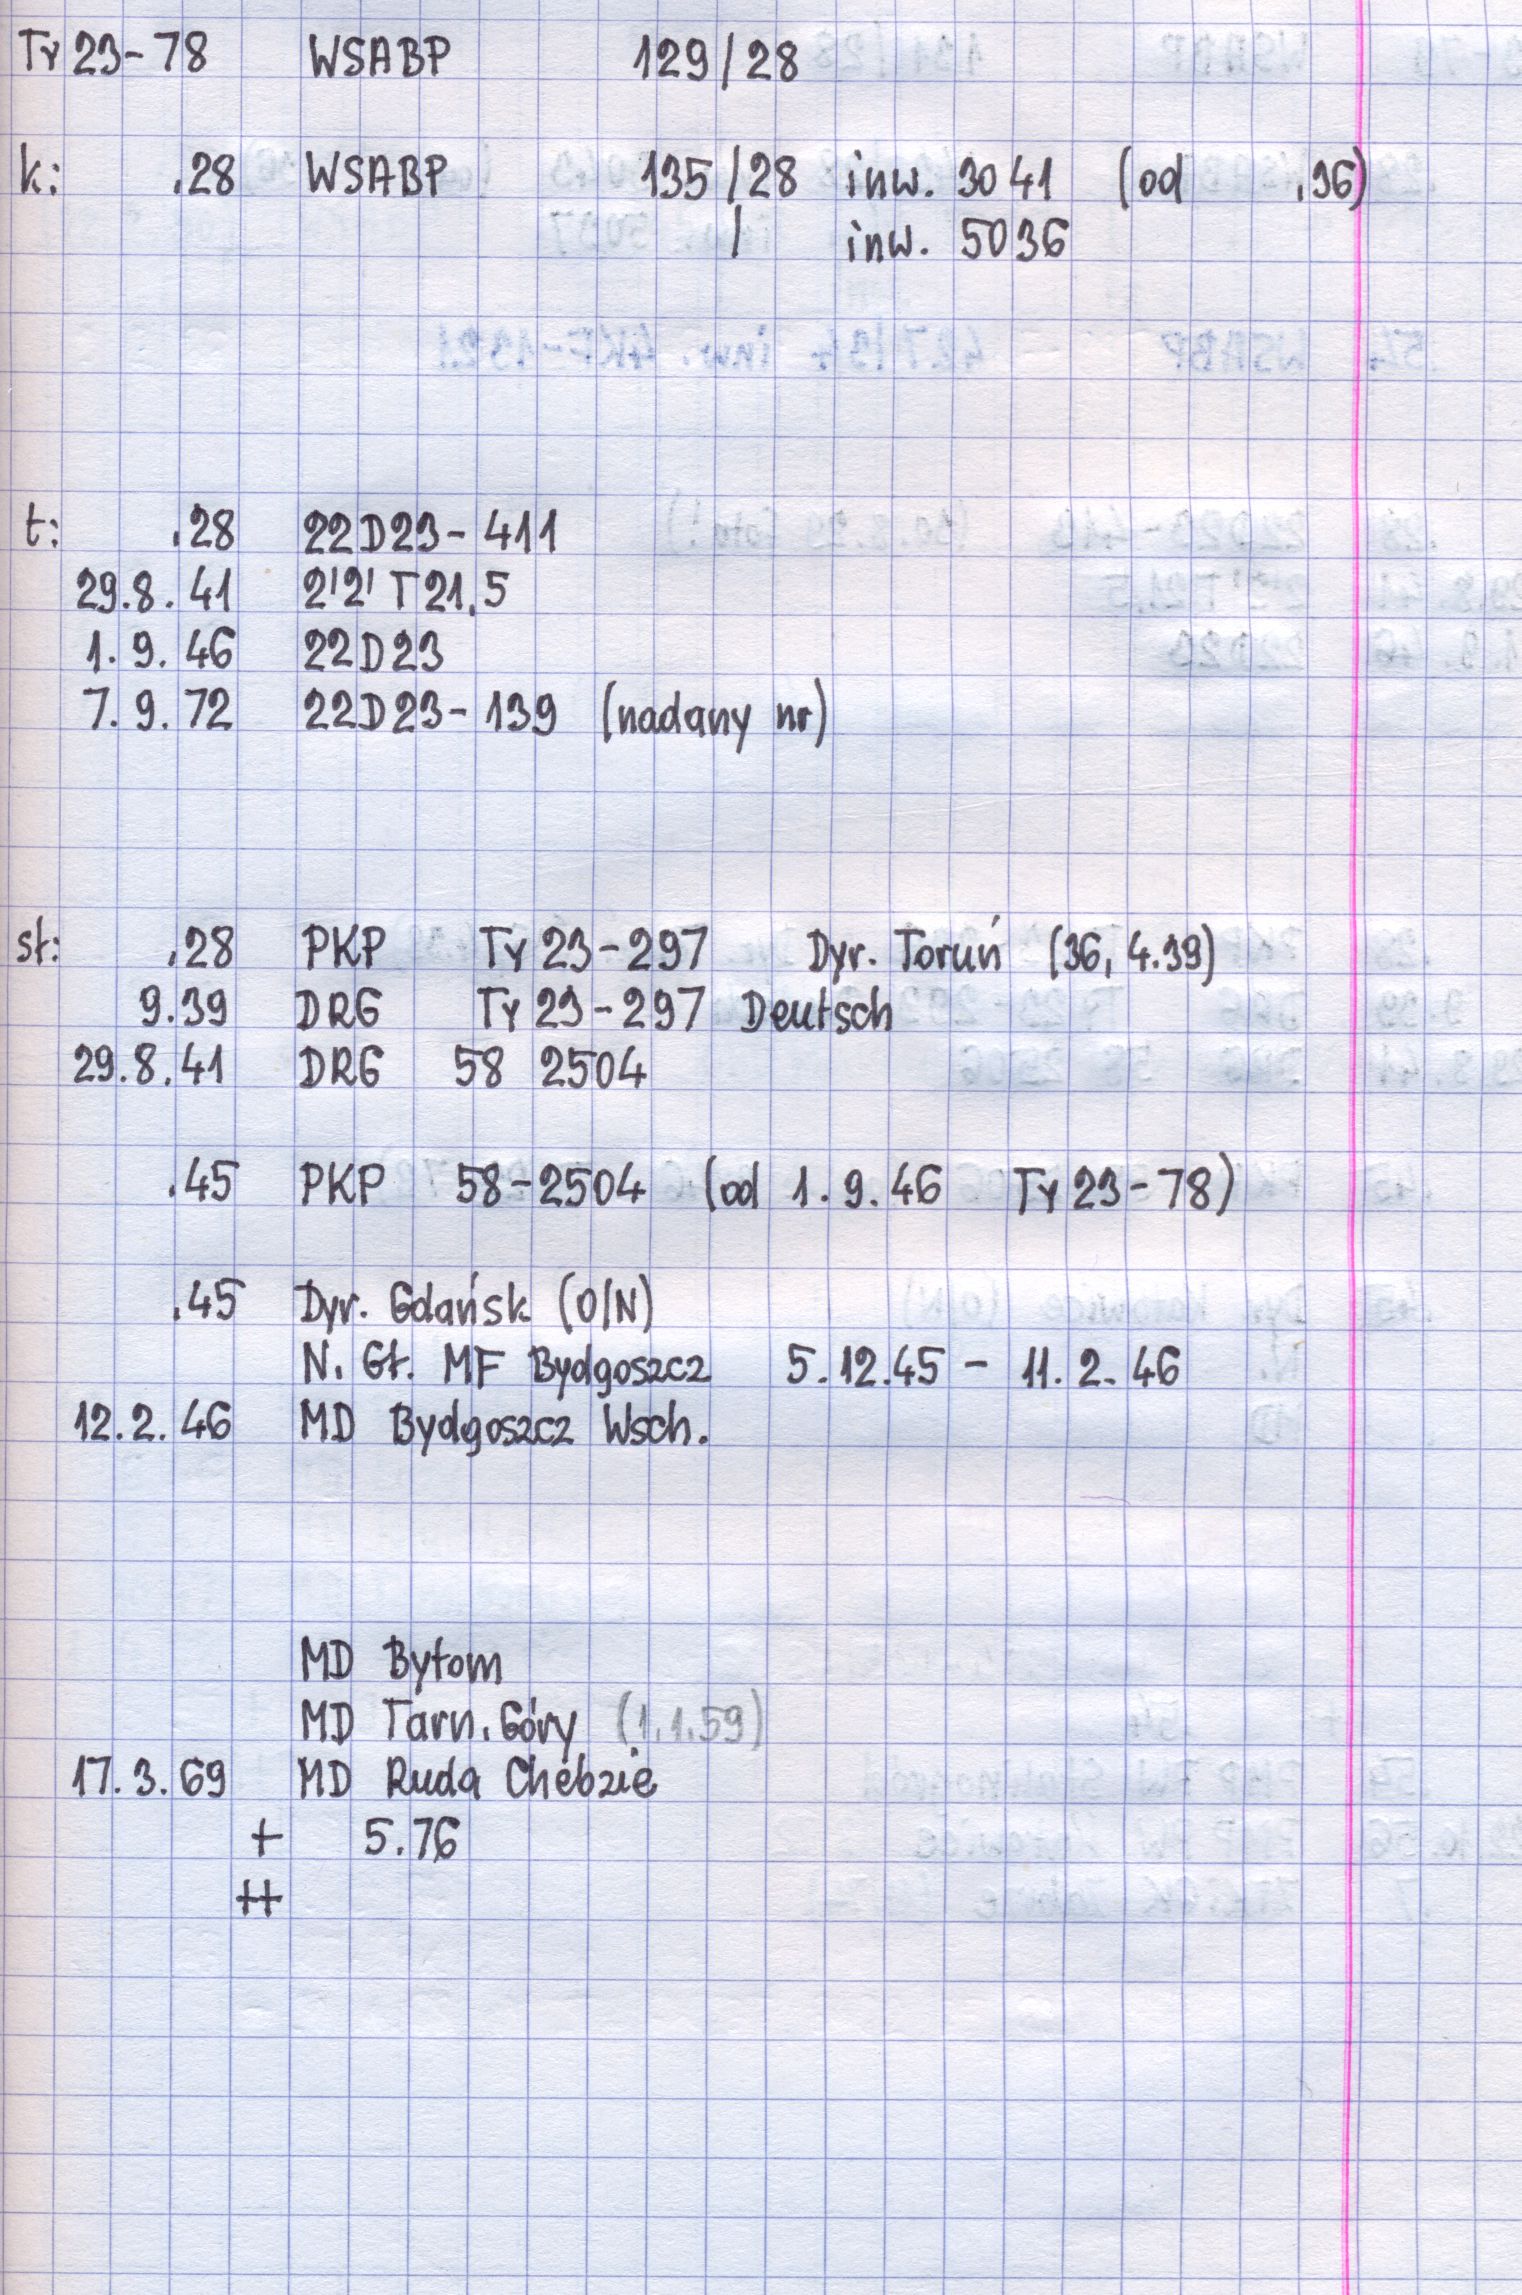 Ty 23-78 WSABP 129/28
k: .28 WSABP 135/28 inw. 3041 (od .36)
/ inw. 5036
t: .28 22D23-411
29.8.41 2'2' T 21,5
1.9.46 22D23
7.9.72 22D23-139 (nadany nr)
sł: .28 PKP Ty 23-297 Dyr. Toruń (36, 4.39)
9.39 DRG Ty 23-297 Deutsch
29.8.41 DRG 58 2504
.45 PKP 58-2504 (od 1.9.46 Ty 23-78)
.45 Dyr. Gdańsk (O/N)
N. Gł. MF Bydgoszcz 5.12.45 - 11.2.46
12.2.46 MD Bydgoszcz Wsch.
MD Bytom
MD Tarn. Góry (1.1.59)
17.3.69 MD Ruda Chebzie
+ 5.76
++